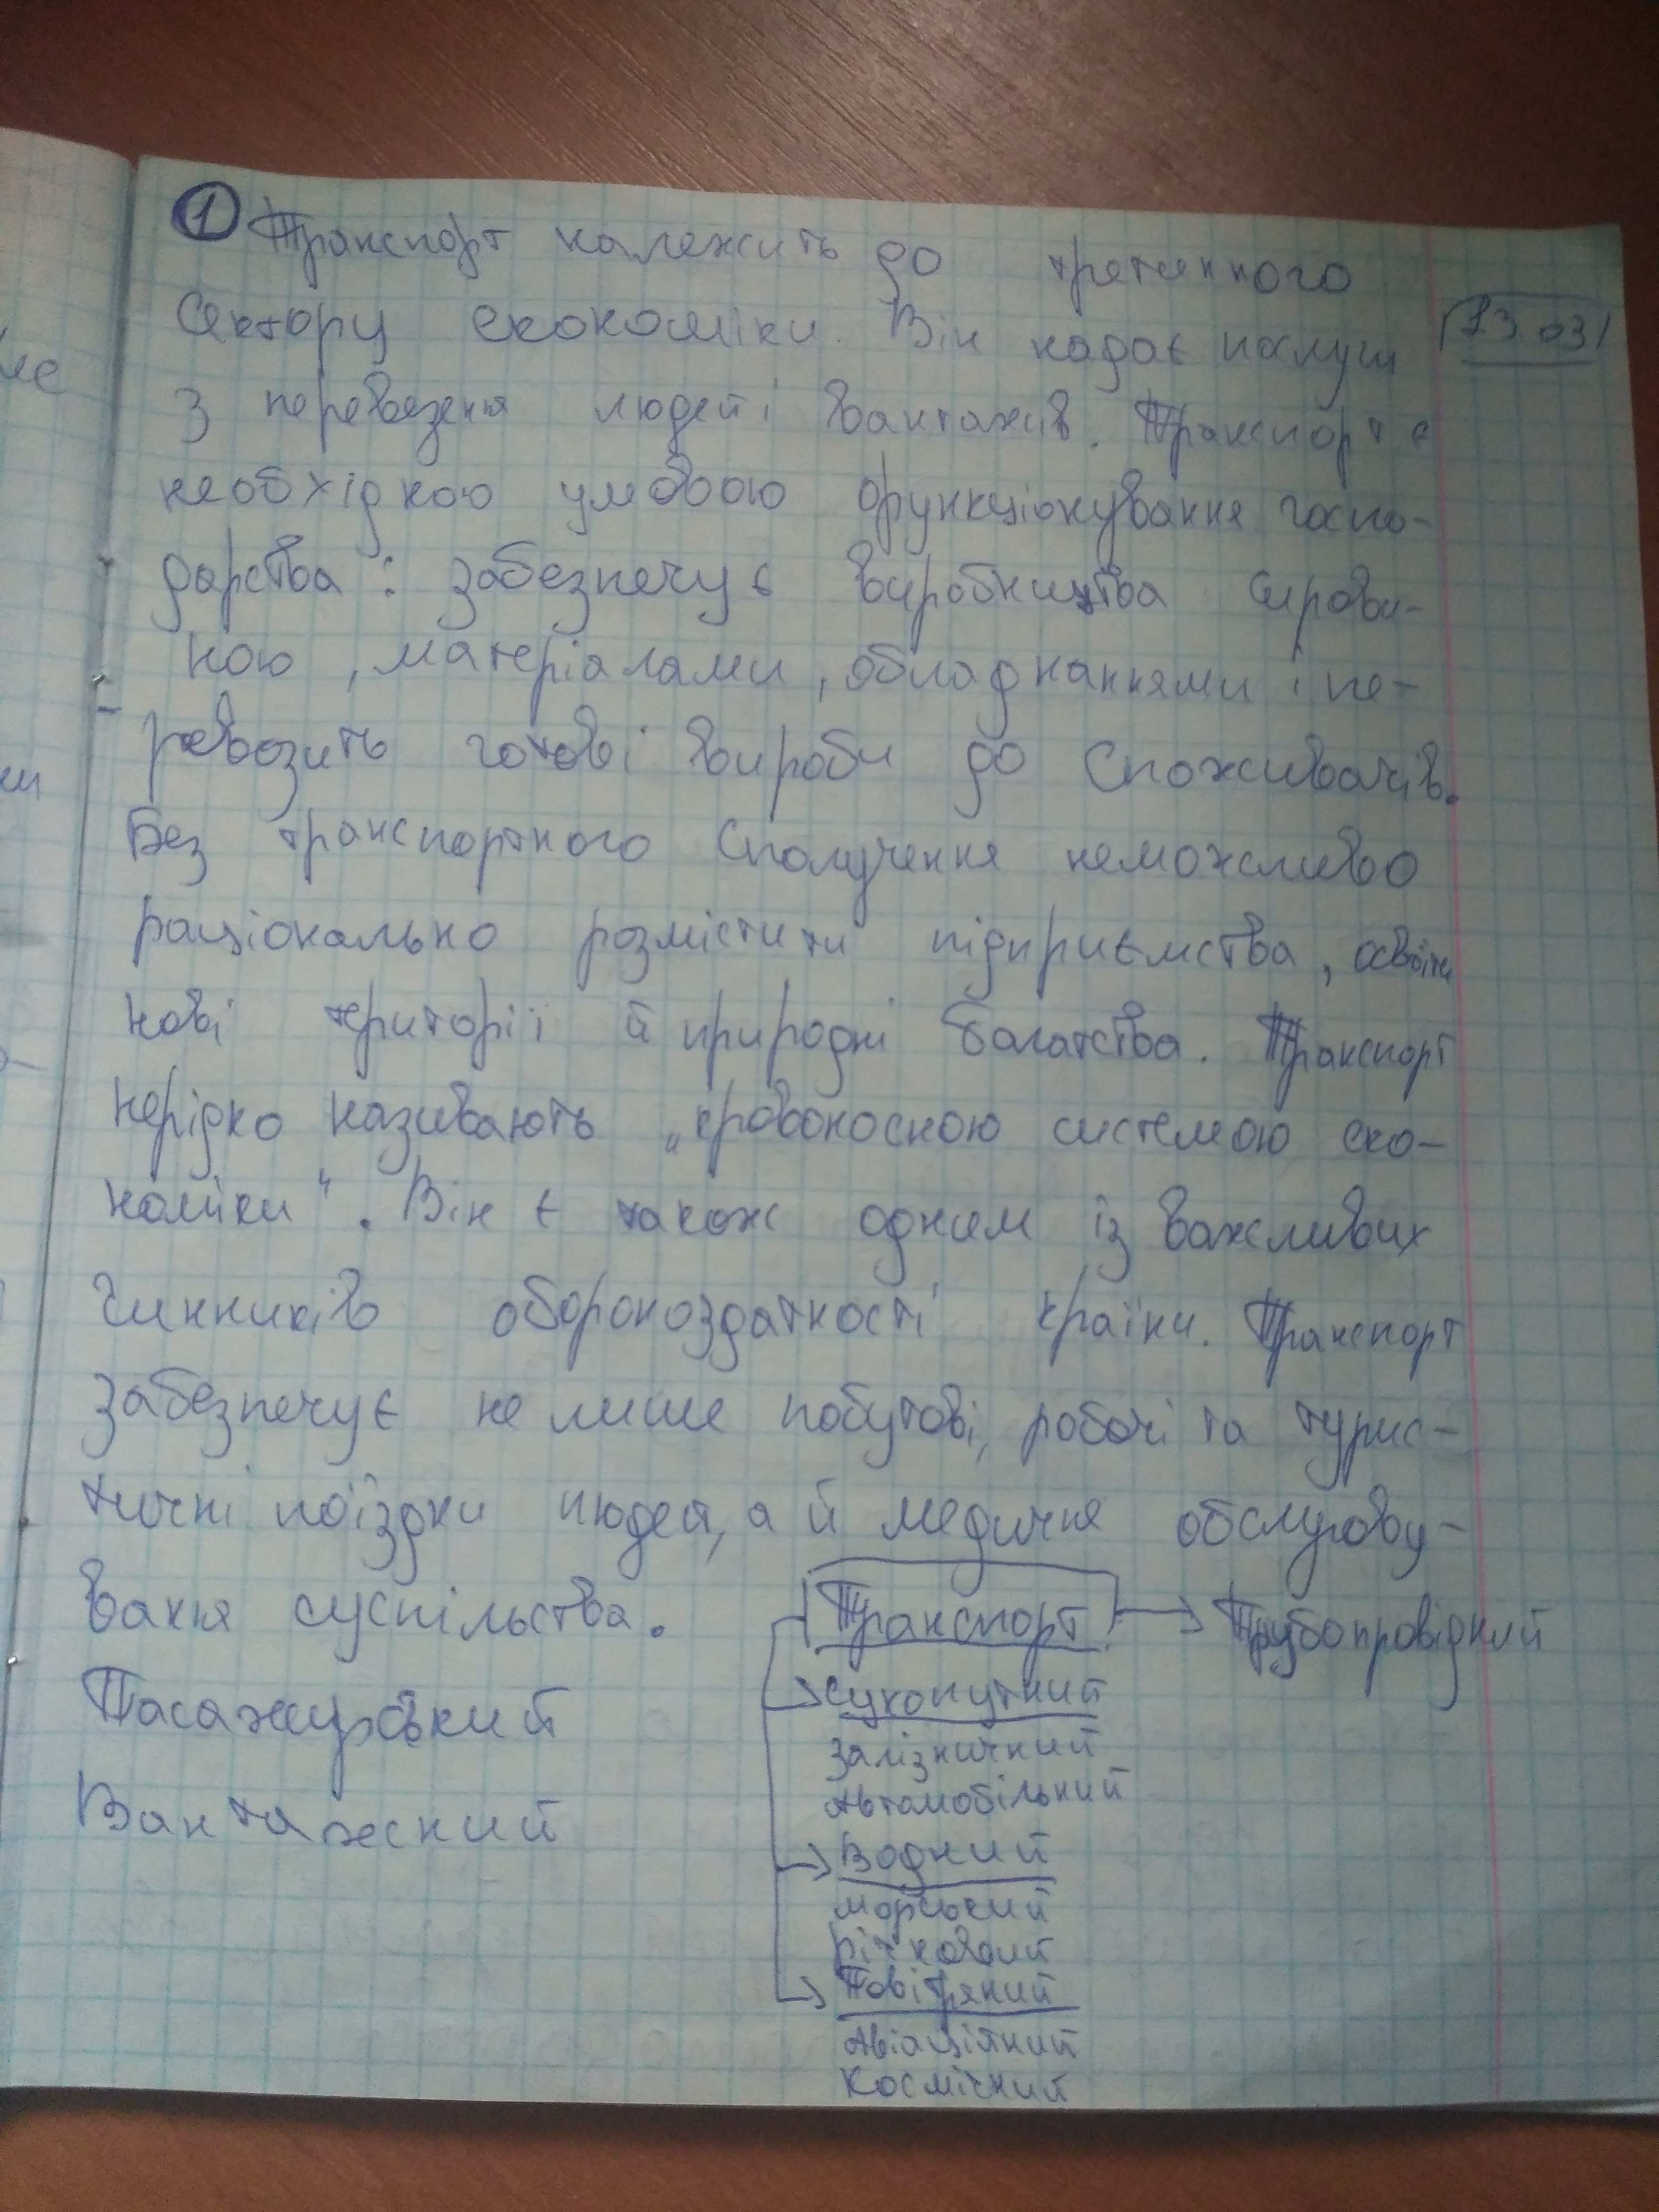 1 Транспорт належить до третинного
сектору економіки. Він надає послуги
13.03
з перевезеня людей і вантажів. Транспорт є
необхідною умовою функціонування госпо-
дарства: забезпечує виробництва сирови-
ною, матеріалами, обладнаннями і пе-
ревозить готові вироби до споживачів.
Без транспортного сполучення неможливо
раціонально розмістити підприємства, освоїти
нові території й природні багатства. Транспорт
нерідко називають „кровоносною системою еко-
номіки". Він є також одним із важливих
чинників обороноздатності країни. Транспорт
забезпечує не лише побутові, робочі та турис-
тичні поїздки людей, а й медичне обслугову-
вання суспільства.
Транспорт → Трубопровідний
Пасажирський
Вантажний
Сухопутний
Залізничний
Автомобільний
Водний
морський
річковий
Повітряний
Авіаційний
Космічний